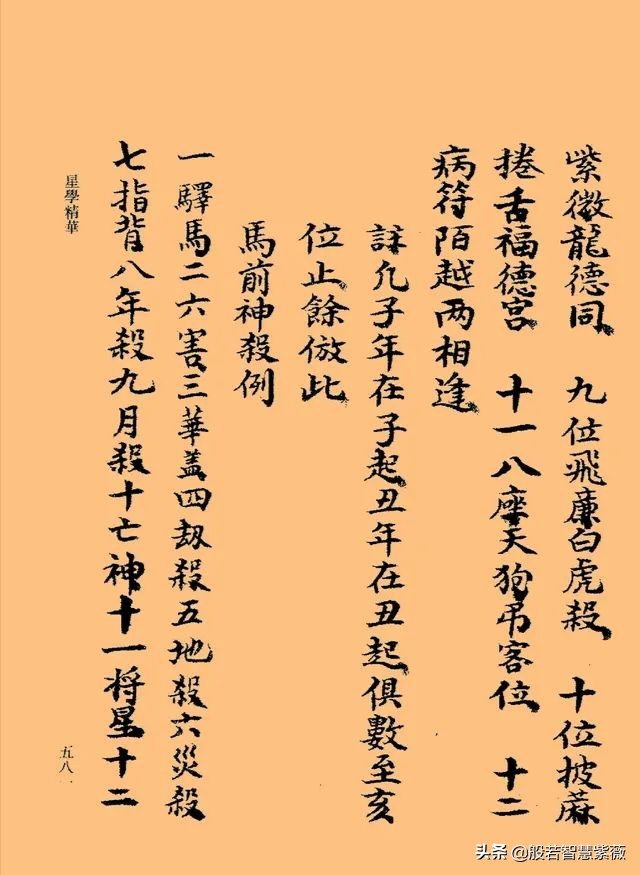 紫微龍德同　九位飛廉白虎殺　十位披蔴
捲舌福德宮　十一八座天狗吊客位　十二
病符陌越两相逢
註凡子年在子起丑年在丑起俱數至亥
位止餘倣此
馬前神殺例
一驛馬二六害三華盖四刼殺五地殺六災殺
七指背八年殺九月殺十亡神十一将星十二
星學精華
五八一
头条 @般若智慧紫薇